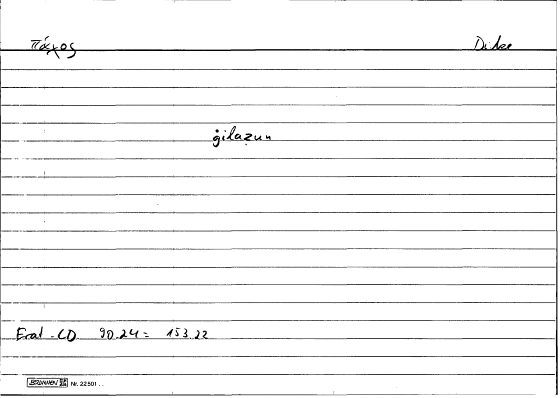 πάχος Dicke
ġilaẓun
Erat-CD. 90.24 = 153.22
BRUNNEN Nr. 22501